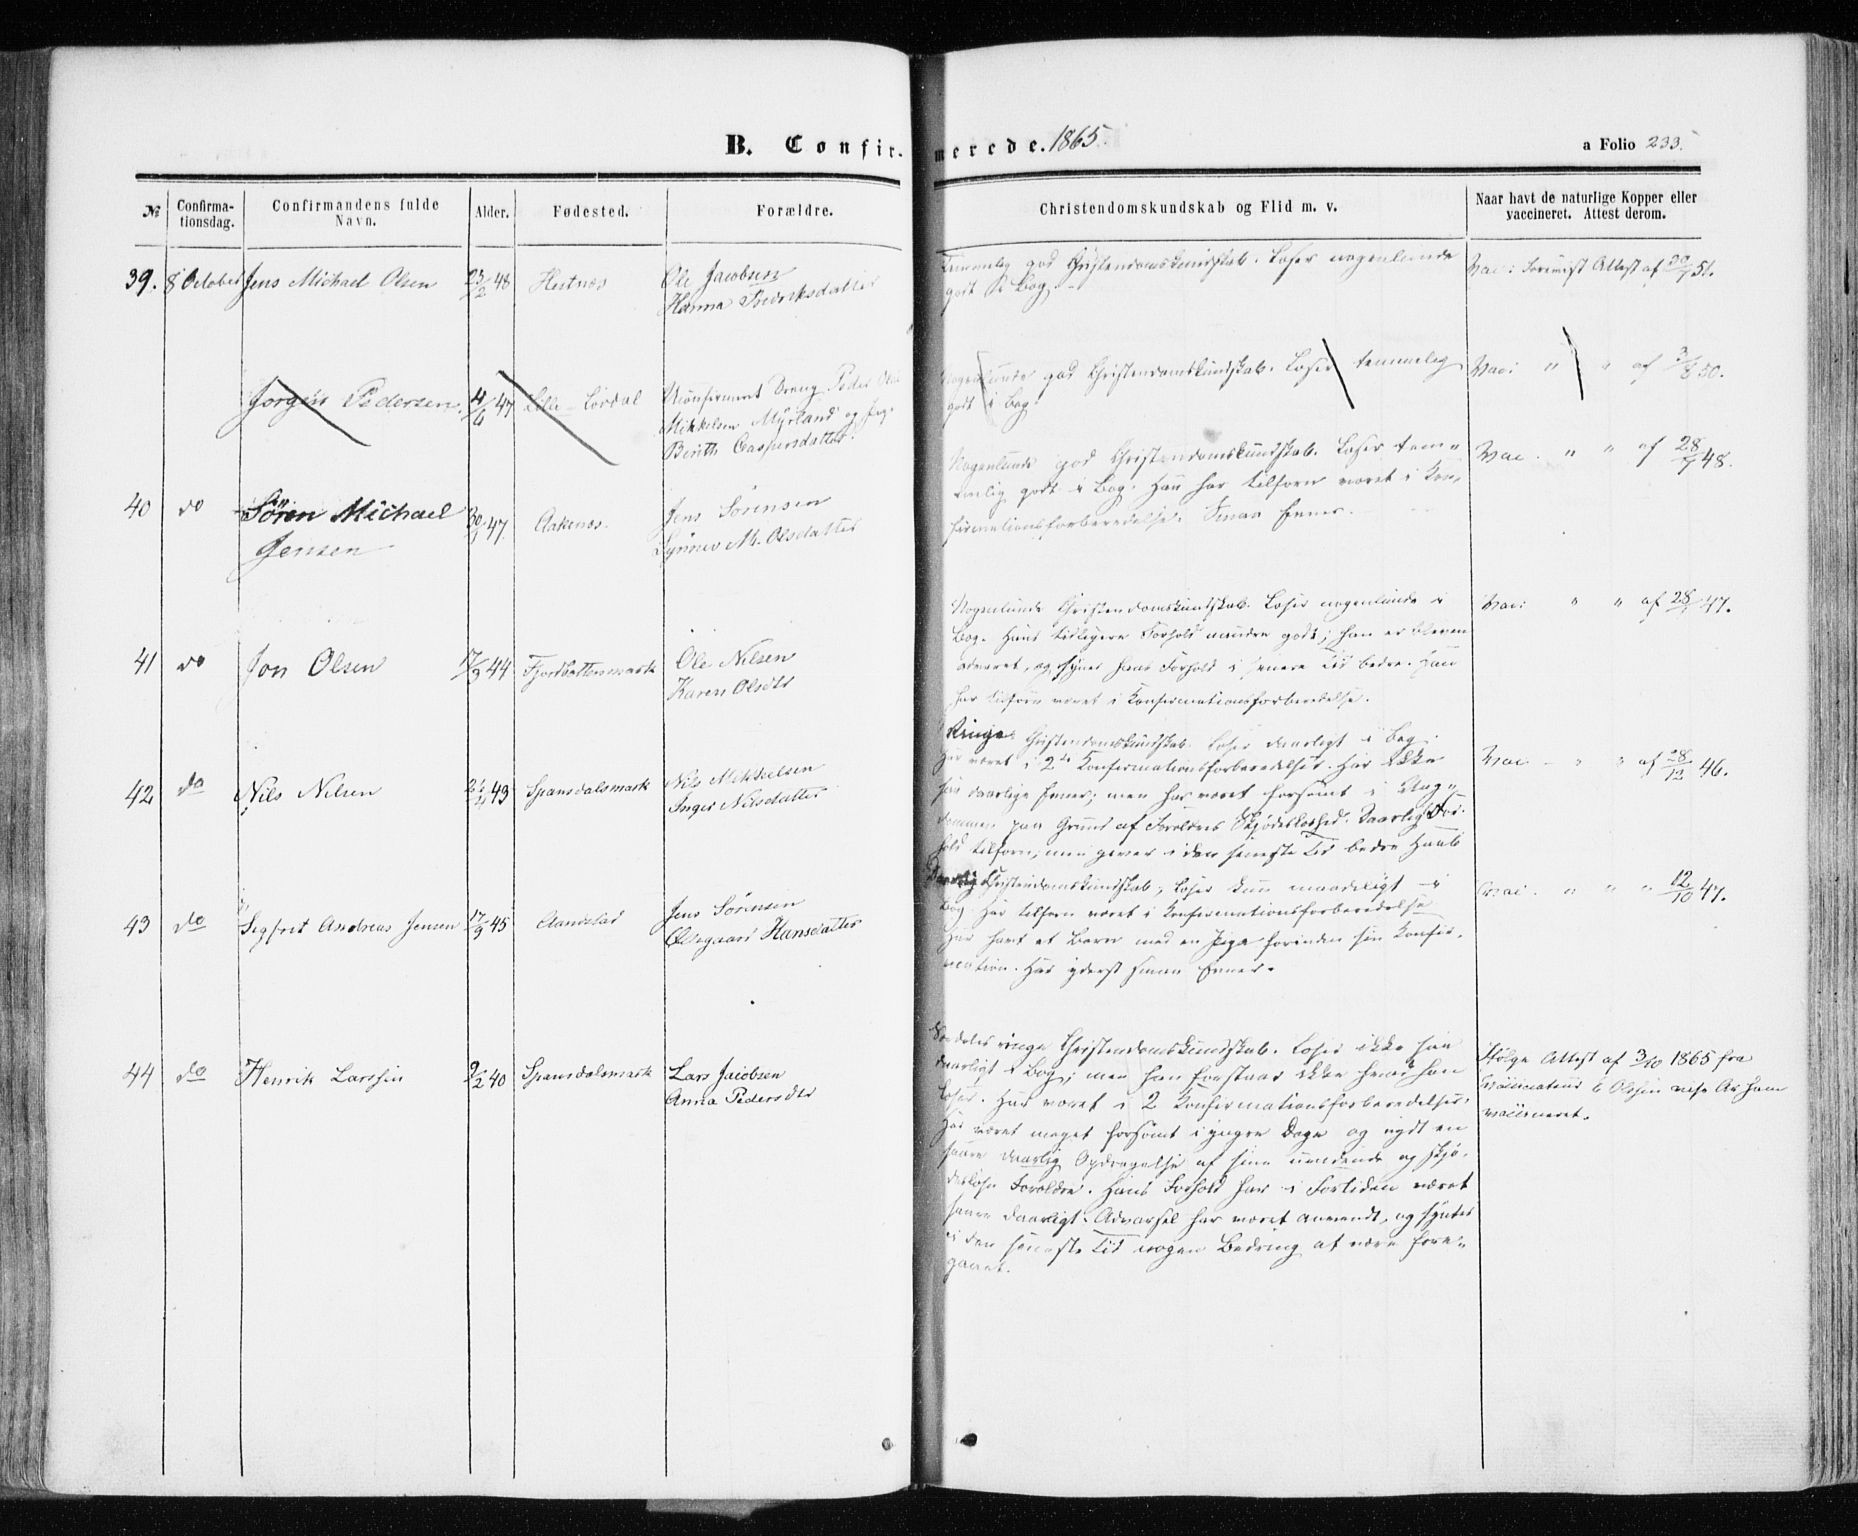 B. Confir-
merede. 1865.
a Folio 233.
№
Confirma-
tionsdag.
Confirmandens fulde
Navn.
Alder.
Fødested.
Forældre.
Christendomskundskab og Flid m. v.
Naar havt de naturlige Kopper eller
vaccineret. Attest derom.
39. 8 October Jens Michael Olsen 23/2 48 Hestnæs Ole Jacobsen
Hanna Fredriksdatter
Temmelig god Christendomskundskab. Læser nogenlunde
godt i Bog.
Vac: Attest af 51.
Jørgen Pedersen. 4/6 47 Lille-Lørdal Uconfirmeret Dreng Peder
Mikkelsen Myrland og
Berith Caspersdatter.
Nogenlunde god Christendomskundskab. Læser temmelig
godt i Bog.
Vac: " " af 3/8 50.
40 do Sören Michael
Jensen
47. Aakenes. Jens Sørensen
M. Olsdatter
Nogenlunde god Christendomskundskab. Læser tem-
melig godt i Bog. Han har tilforn været i Con-
firmationsforberedelse. Smaa Evner.
Vac. " " af 28/7 48.
41 do Jon Olsen 17/9 44 Fjordbottenmark Ole Nilsen
Karen Olsdtr
Nogenlunde Christendomskundskab. Læser nogenlunde i
Bog. Hans tidligere Forhold mindre godt; han er bleven
advaret, og synes hans Forhold i senere Tid bedre. Han
har tilforn været i Konfirmationsforberedelse.
Vac: " " af 47.
42 do Nils Nilsen 43 Spansdalsmark Nils Mikkelsen
Inger Nilsdatter
Ringe Christendomskundskab. Læser daarligt i Bog.
Har været i 2de Konfirmationsforberedelser. Har ikke
saa daarlige Evner; men har været forsømt i Ung-
dommen paa Grund af Forældres Skjødesløshed. Daarligt For-
hold tilforn; men giver i den seneste Tid bedre Haab
Vac. " " af 28/12 46.
43 do Sigfret Andreas Jensen 17/9 45 Aanstad Jens Sørensen
Ødegaard Hansdatter
Daarlig Christendomskundskab; læser kun maadeligt i
Bog. Har tilforn været i Konfirmationsforberedelse
Har havt et Barn med en Pige forinden sin Konfir-
mation. Har yderst smaa Evner.
Vac. " " " 12/10 47.
44 do Henrik Larssen 9/2 40 Spansdalsmark Lars Jacobsen
Anna Pedersdtr
Særdeles ringe Christendomskundskab. Læser ikke saa
daarligt i Bog; men han forstaar ikke hvad han
læser. Har været i 2 Konfirmationsforberedelser.
Har været meget forsømt i yngre Dage og nydt en
saare daarlig Opdragelse af sine uvidende og skjø-
desløse Forældre. Hans Forhold har i Fortiden været
saare daarligt. Advarsel har været anvendt, og syntes
i den seneste Tid nogen Bedring at være fore-
gaaet.
Ifølge Attest af 3/10 1865 fra
Vaccinateur E Olssen
vaccineret.